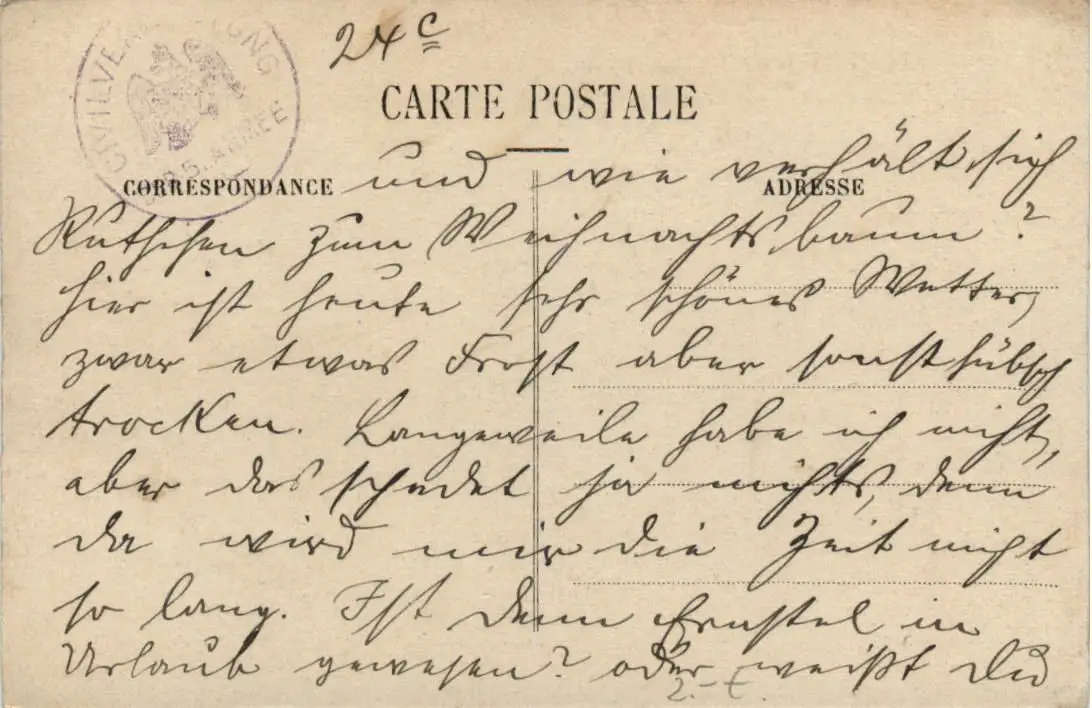 24c
CIVILVERWALTUNG
5. ARMEE
CARTE POSTALE
CORRESPONDANCE
ADRESSE
und wie verhält sich
Ruthchen zum Weihnachtsbaum?
hier ist heute sehr schönes Wetter,
zwar etwas Frost aber sonst hübsch
trocken. Langeweile habe ich nicht,
aber das schadet ja nichts, denn
da wird mir die Zeit nicht
so lang. Ist denn Ernstel in
Urlaub gewesen? oder weißt Du
2.-€